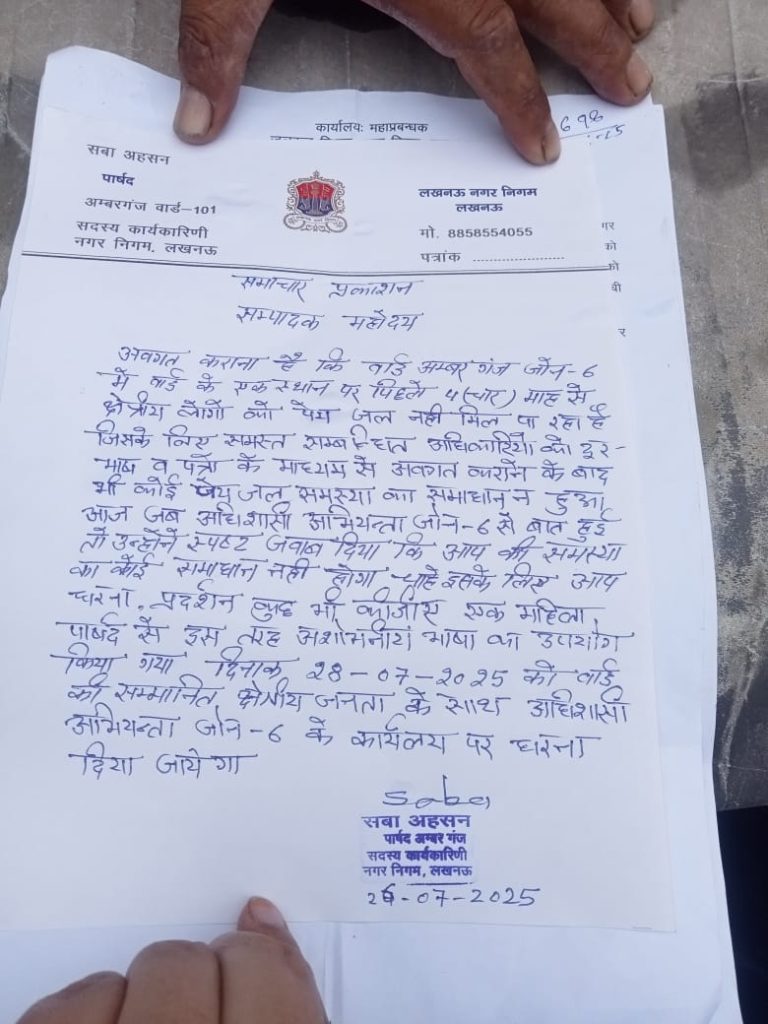 कार्यालयः महाप्रबन्धक
सबा अहसन
पार्षद
अम्बरगंज वार्ड–101
सदस्य कार्यकारिणी
नगर निगम, लखनऊ
लखनऊ नगर निगम
लखनऊ
मो. 8858554055
पत्रांक ........................
समाचार प्रकाशन
सम्पादक महोदय
अवगत कराना है कि वार्ड अम्बर गंज जोन-6
में वार्ड के एक स्थान पर पिछले 4 (चार) माह से
क्षेत्रीय लोगों को पेय जल नही मिल पा रहा है
जिसके लिए समस्त सम्बन्धित अधिकारियों को दूर-
भाष व पत्रों के माध्यम से अवगत कराने के बाद
भी कोई पेय जल समस्या का समाधान न हुआ
आज जब अधिशासी अभियन्ता जोन-6 से बात हुई
तो उन्होंने स्पष्ट जवाब दिया कि आप की समस्या
का कोई समाधान नही होगा चाहे इसके लिए आप
धरना, प्रदर्शन कुछ भी कीजिए एक महिला
पार्षद से इस तरह अशोभनीय भाषा का उपयोग
किया गया दिनांक 28-07-2025 को वार्ड
की सम्मानित क्षेत्रीय जनता के साथ अधिशासी
अभियन्ता जोन-6 के कार्यलय पर धरना
दिया जायेगा
Saba
सबा अहसन
पार्षद अम्बर गंज
सदस्य कार्यकारिणी
नगर निगम, लखनऊ
26-07-2025